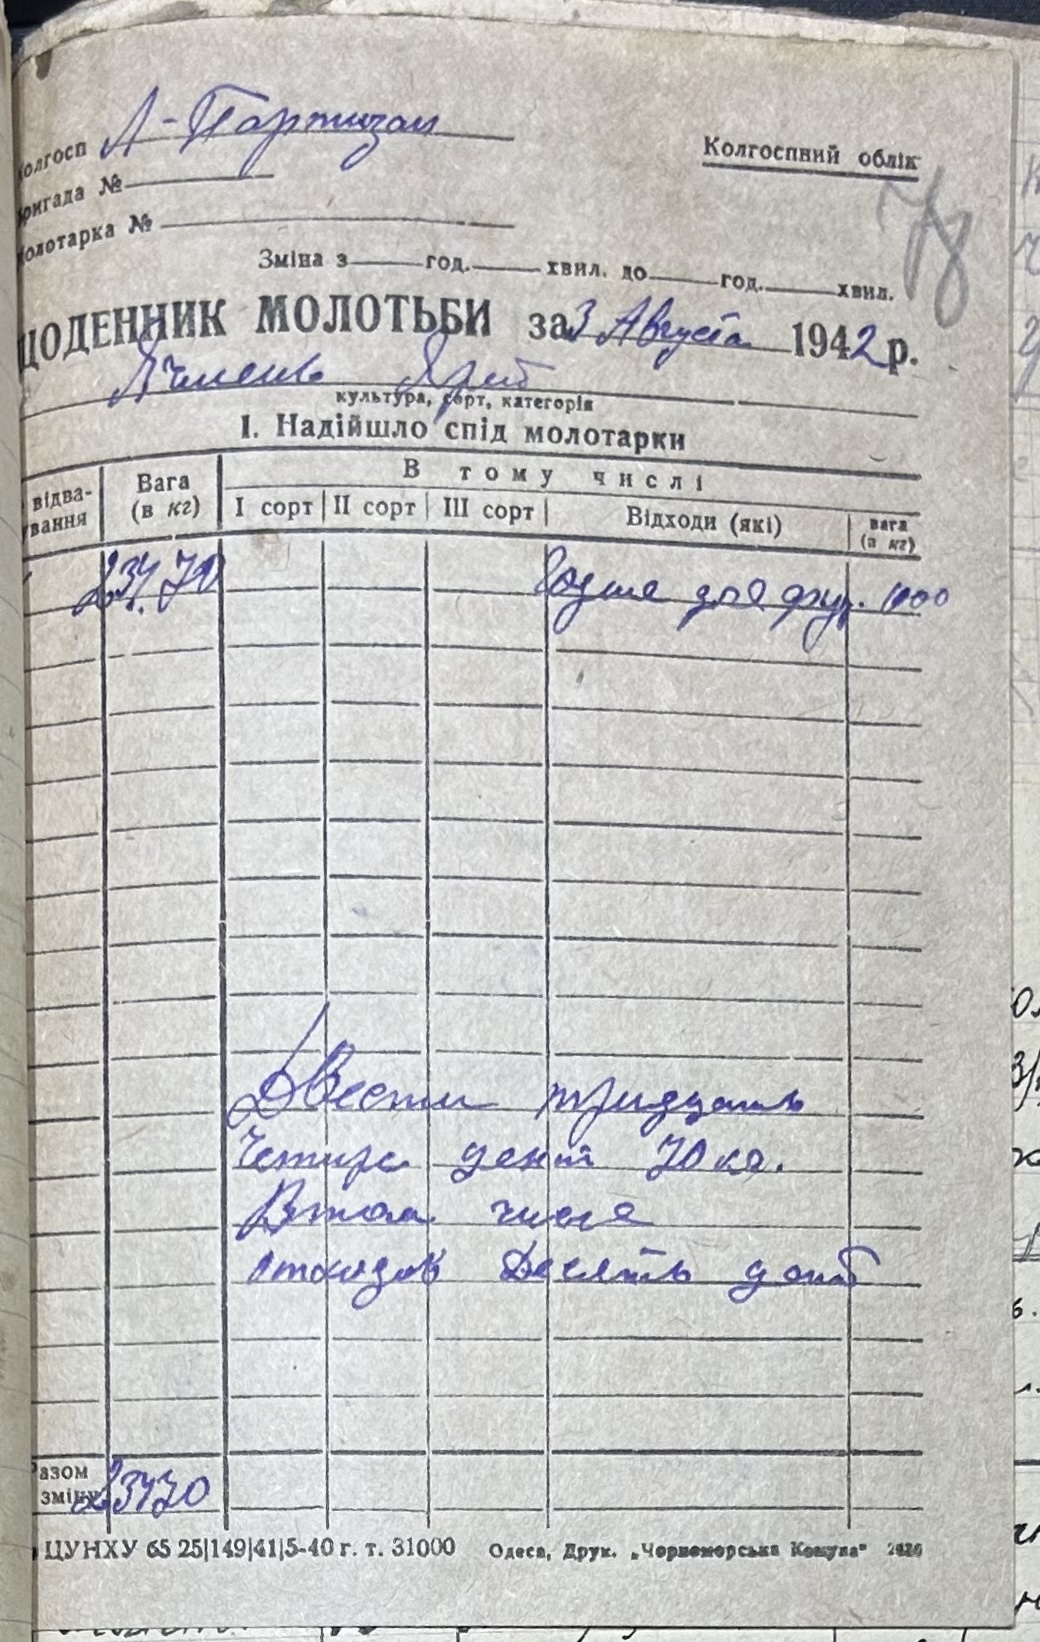 Колгосп А-Партизан
Колгоспний облік
Бригада №
Молотарка №
78
Зміна з год. хвил. до год. хвил.
ЩОДЕННИК МОЛОТЬБИ за 3 Августа 1942 р.
Ячмень Яров
культура, сорт, категорія
І. Надійшло спід молотарки
відва-
вання
Вага
(в кг)
В тому числі
І сорт ІІ сорт ІІІ сорт Відходи (які) вага
(в кг)
23470 для фур. 1000
Двести тридцать
Четире цент 70 кг.
Втом числе
отходов Десять цент
азом
зміну 23470
ЦУНХУ 65 25|149|41|5-40 г. т. 31000 Одеса, Друк. „Чорноморська Комуна"